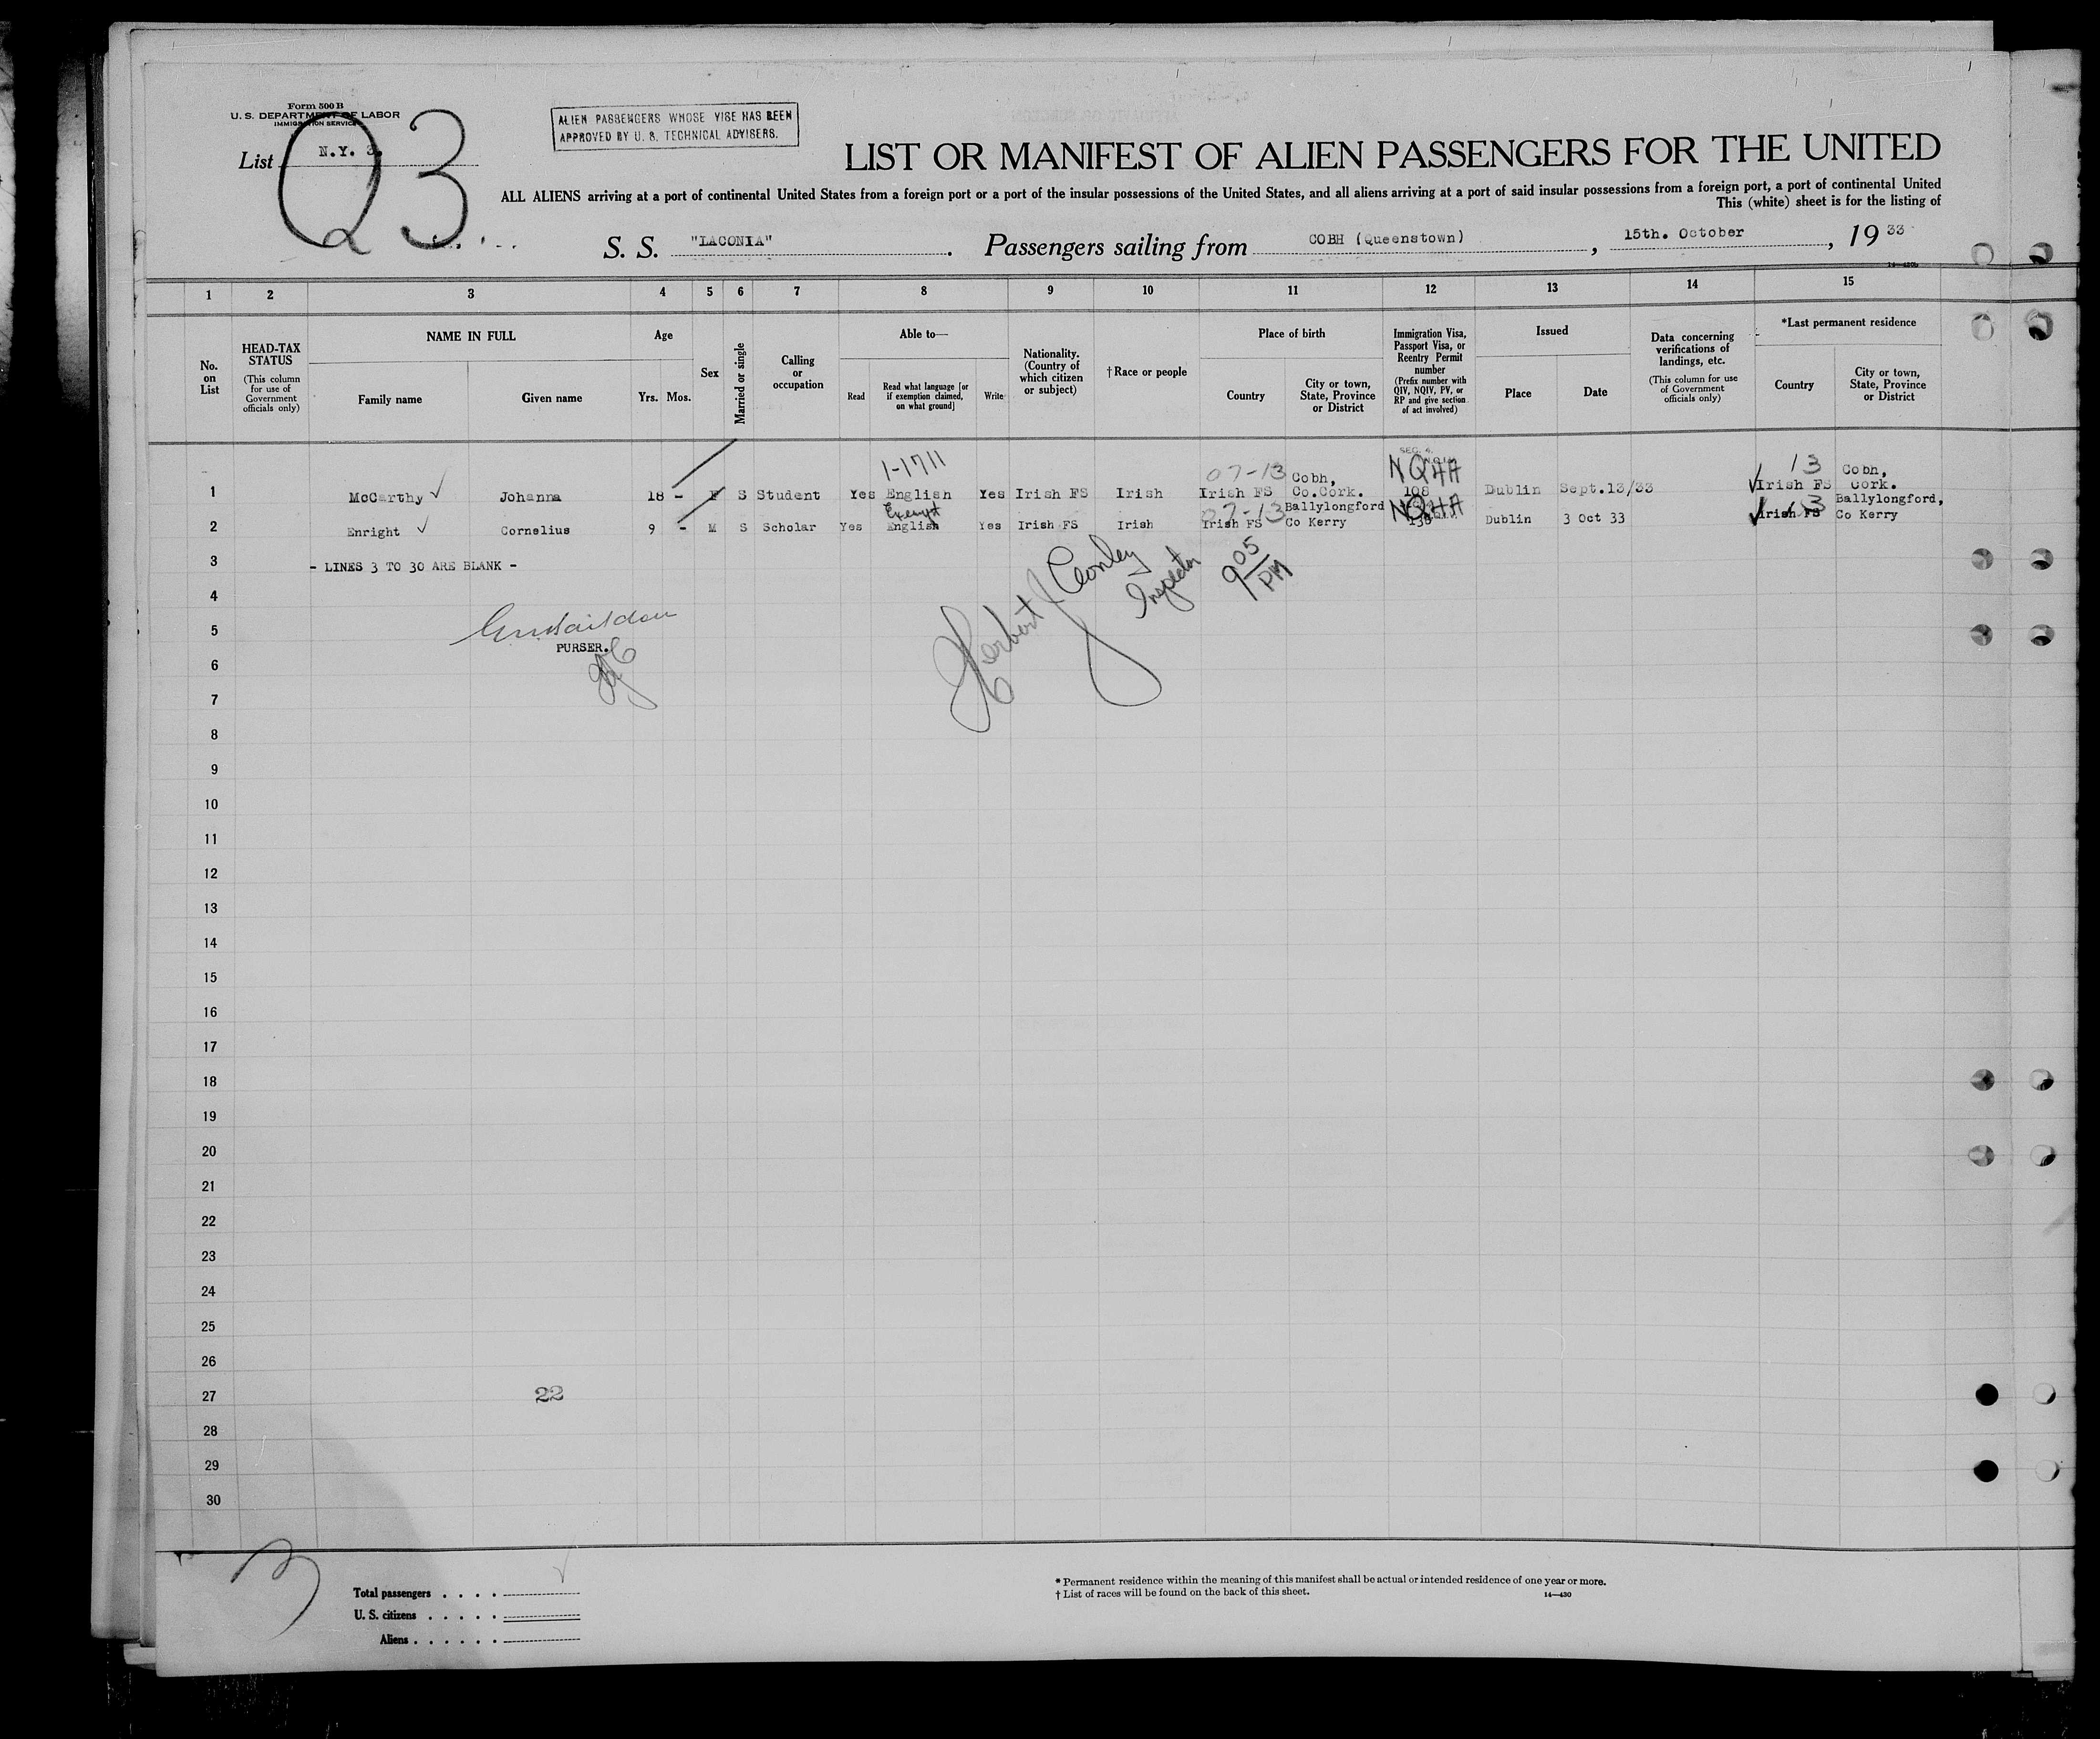 Form 500 B
U. S. DEPARTMENT OF LABOR
IMMIGRATION SERVICE
List N.Y. 3.
Q3
ALIEN PASSENGERS WHOSE VISE HAS BEEN
APPROVED BY U. S. TECHNICAL ADVISERS.
LIST OR MANIFEST OF ALIEN PASSENGERS FOR THE UNITED
ALL ALIENS arriving at a port of continental United States from a foreign port or a port of the insular possessions of the United States, and all aliens arriving at a port of said insular possessions from a foreign port, a port of continental United
This (white) sheet is for the listing of
S. S. "LACONIA". Passengers sailing from COBH (Queenstown), 15th. October, 19 33
1 2 3 4 5 6 7 8 9 10 11 12 13 14 15
No. on List
HEAD-TAX STATUS
(This column for use of Government officials only)
NAME IN FULL
Family name
Given name
Age
Yrs. Mos.
Sex
Married or single
Calling or occupation
Able to—
Read
Read what language [or if exemption claimed, on what ground]
Write
Nationality. (Country of which citizen or subject)
† Race or people
Place of birth
Country
City or town, State, Province or District
Immigration Visa, Passport Visa, or Reentry Permit number
(Prefix number with QIV, NQIV, PV, or RP and give section of act involved)
Issued
Place
Date
Data concerning verifications of landings, etc.
(This column for use of Government officials only)
*Last permanent residence
Country
City or town, State, Province or District
1-1711
07-13
SEC. 4.
NQHA
13
1 McCarthy ✓ Johanna 18 - F S Student Yes English Yes Irish FS Irish Irish FS Cobh, Co.Cork. 108 Dublin Sept.13/33 Irish FS Cobh, Cork.
Exempt
07-13
NQHA
13
2 Enright ✓ Cornelius 9 - M S Scholar Yes English Yes Irish FS Irish Irish FS Ballylongford Co Kerry Dublin 3 Oct 33 Irish FS Ballylongford, Co Kerry
3 - LINES 3 TO 30 ARE BLANK -
Herbert J Conley
Inspector
9 05 PM
4
5
PURSER.
6
7
8
9
10
11
12
13
14
15
16
17
18
19
20
21
22
23
24
25
26
27 22
28
29
30
3
Total passengers . . . .
U. S. citizens . . . . .
Aliens . . . . . .
* Permanent residence within the meaning of this manifest shall be actual or intended residence of one year or more.
† List of races will be found on the back of this sheet.
14—430